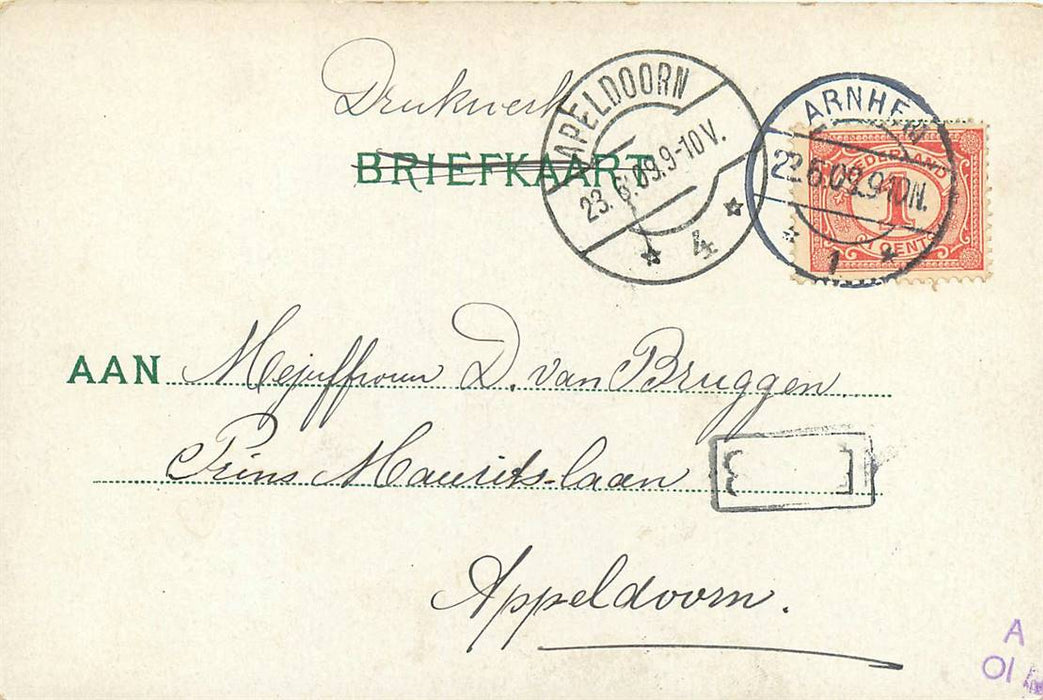 Drukwerk
BRIEFKAART
APELDOORN
23.6.09.9-10V.
4
ARNHEM
22.6.09.9-10N.
1
NEDERLAND
1
1 CENT
AAN Mejuffrouw D. van Bruggen,
Prins Maurits-laan
Appeldoorn.
A
01